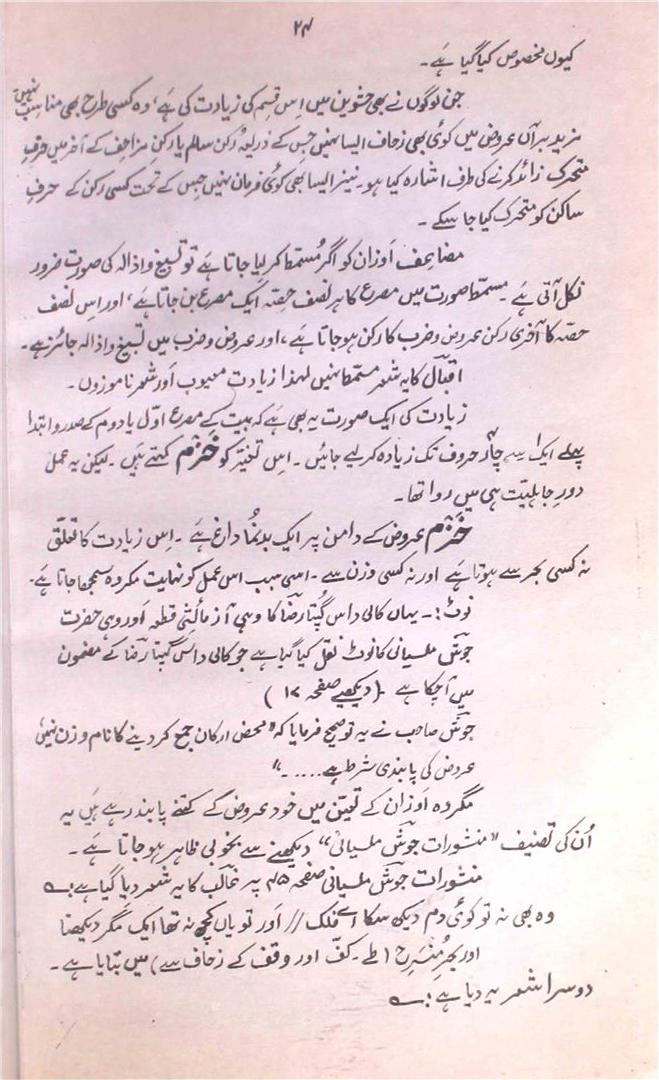 ۲۴
کیوں مخصوص کیا گیا ہے۔
جن لوگوں نے بھی حشوین میں اِس قسم کی زیادت کی ہے، وہ کسی طرح بھی مناسب نہیں
مزید برآں عروض میں کوئی بھی زحاف ایسا نہیں جس کے ذریعہ رُکن سالم یا رکنِ مزاحف کے آخر میں حرفِ
متحرک زائد کرنے کی طرف اشارہ کیا ہو۔ نیز ایسا بھی کوئی فرمان نہیں جس کے تحت کسی رکن کے حرفِ
ساکن کو متحرک کیا جا سکے۔
مضاعف اَوزان کو اگر مُسمّط کر لیا جاتا ہے تو تسبیغ و اذالہ کی صورت ضرور
نکل آتی ہے۔ مسمّط صورت میں مصرع کا ہر نصف حصّہ ایک مصرع بن جاتا ہے، اور اس نصف
حصّہ کا آخری رکن عروض و ضرب کا رکن ہو جاتا ہے، اور عروض و ضرب میں تسبیغ و اذالہ جائز ہے۔
اقبالؔ کا یہ شعر مسمّط نہیں لہٰذا زیادت معیوب اَور شعر ناموزوں۔
زیادت کی ایک صورت یہ بھی ہے کہ بیت کے مصرع اوّل یا دوم کے صدر و ابتدا
پہلے ایک سے چار حروف تک زیادہ کر لیے جائیں۔ اِس تغیّر کو خَزْم کہتے ہیں۔ لیکن یہ عمل
دورِ جاہلیّت ہی میں روا تھا۔
خَزْم عروض کے دامن پر ایک بدنُما داغ ہے۔ اِس زیادت کا تعلّق
نہ کسی بحر سے ہوتا ہے اور نہ کسی وزن سے۔ اسی سبب اس عمل کو نہایت مکروہ سمجھا جاتا ہے۔
نوٹ:۔ یہاں کالی داس گُپتا رضاؔ کا وہی آزمائشی قطعہ اَور وہی حضرت
جوشؔ ملسیانی کا نوٹ نقل کیا گیا ہے جو کالی داس گپتا رضاؔ کے مضمون
میں آ چکا ہے۔ (دیکھیے صفحہ ۱۲)
جوشؔ صاحب نے یہ تو صحیح فرمایا کہ "محض ارکان جمع کر دینے کا نام وزن نہیں
عروض کی پابندی شرط ہے.....۔"
مگر وہ اَوزان کے تعیّن میں خود عروض کے کتنے پابند رہے ہیں یہ
اُن کی تصنیف "منشورات جوشؔ ملسیانی" دیکھنے سے بخوبی ظاہر ہو جاتا ہے۔
منشورات جوشؔ ملسیانی صفحہ ۴۵ پر غالبؔ کا یہ شعر دیا گیا ہے:
وہ بھی نہ تو کوئی دم دیکھ سکا اے فلک // اَور تو یاں کچھ نہ تھا ایک مگر دیکھنا
اور بحرِ مُنسرح (طے۔ کفّ اور وقف کے زحاف سے) میں بتایا ہے۔
دوسرا شعر یہ دیا ہے: